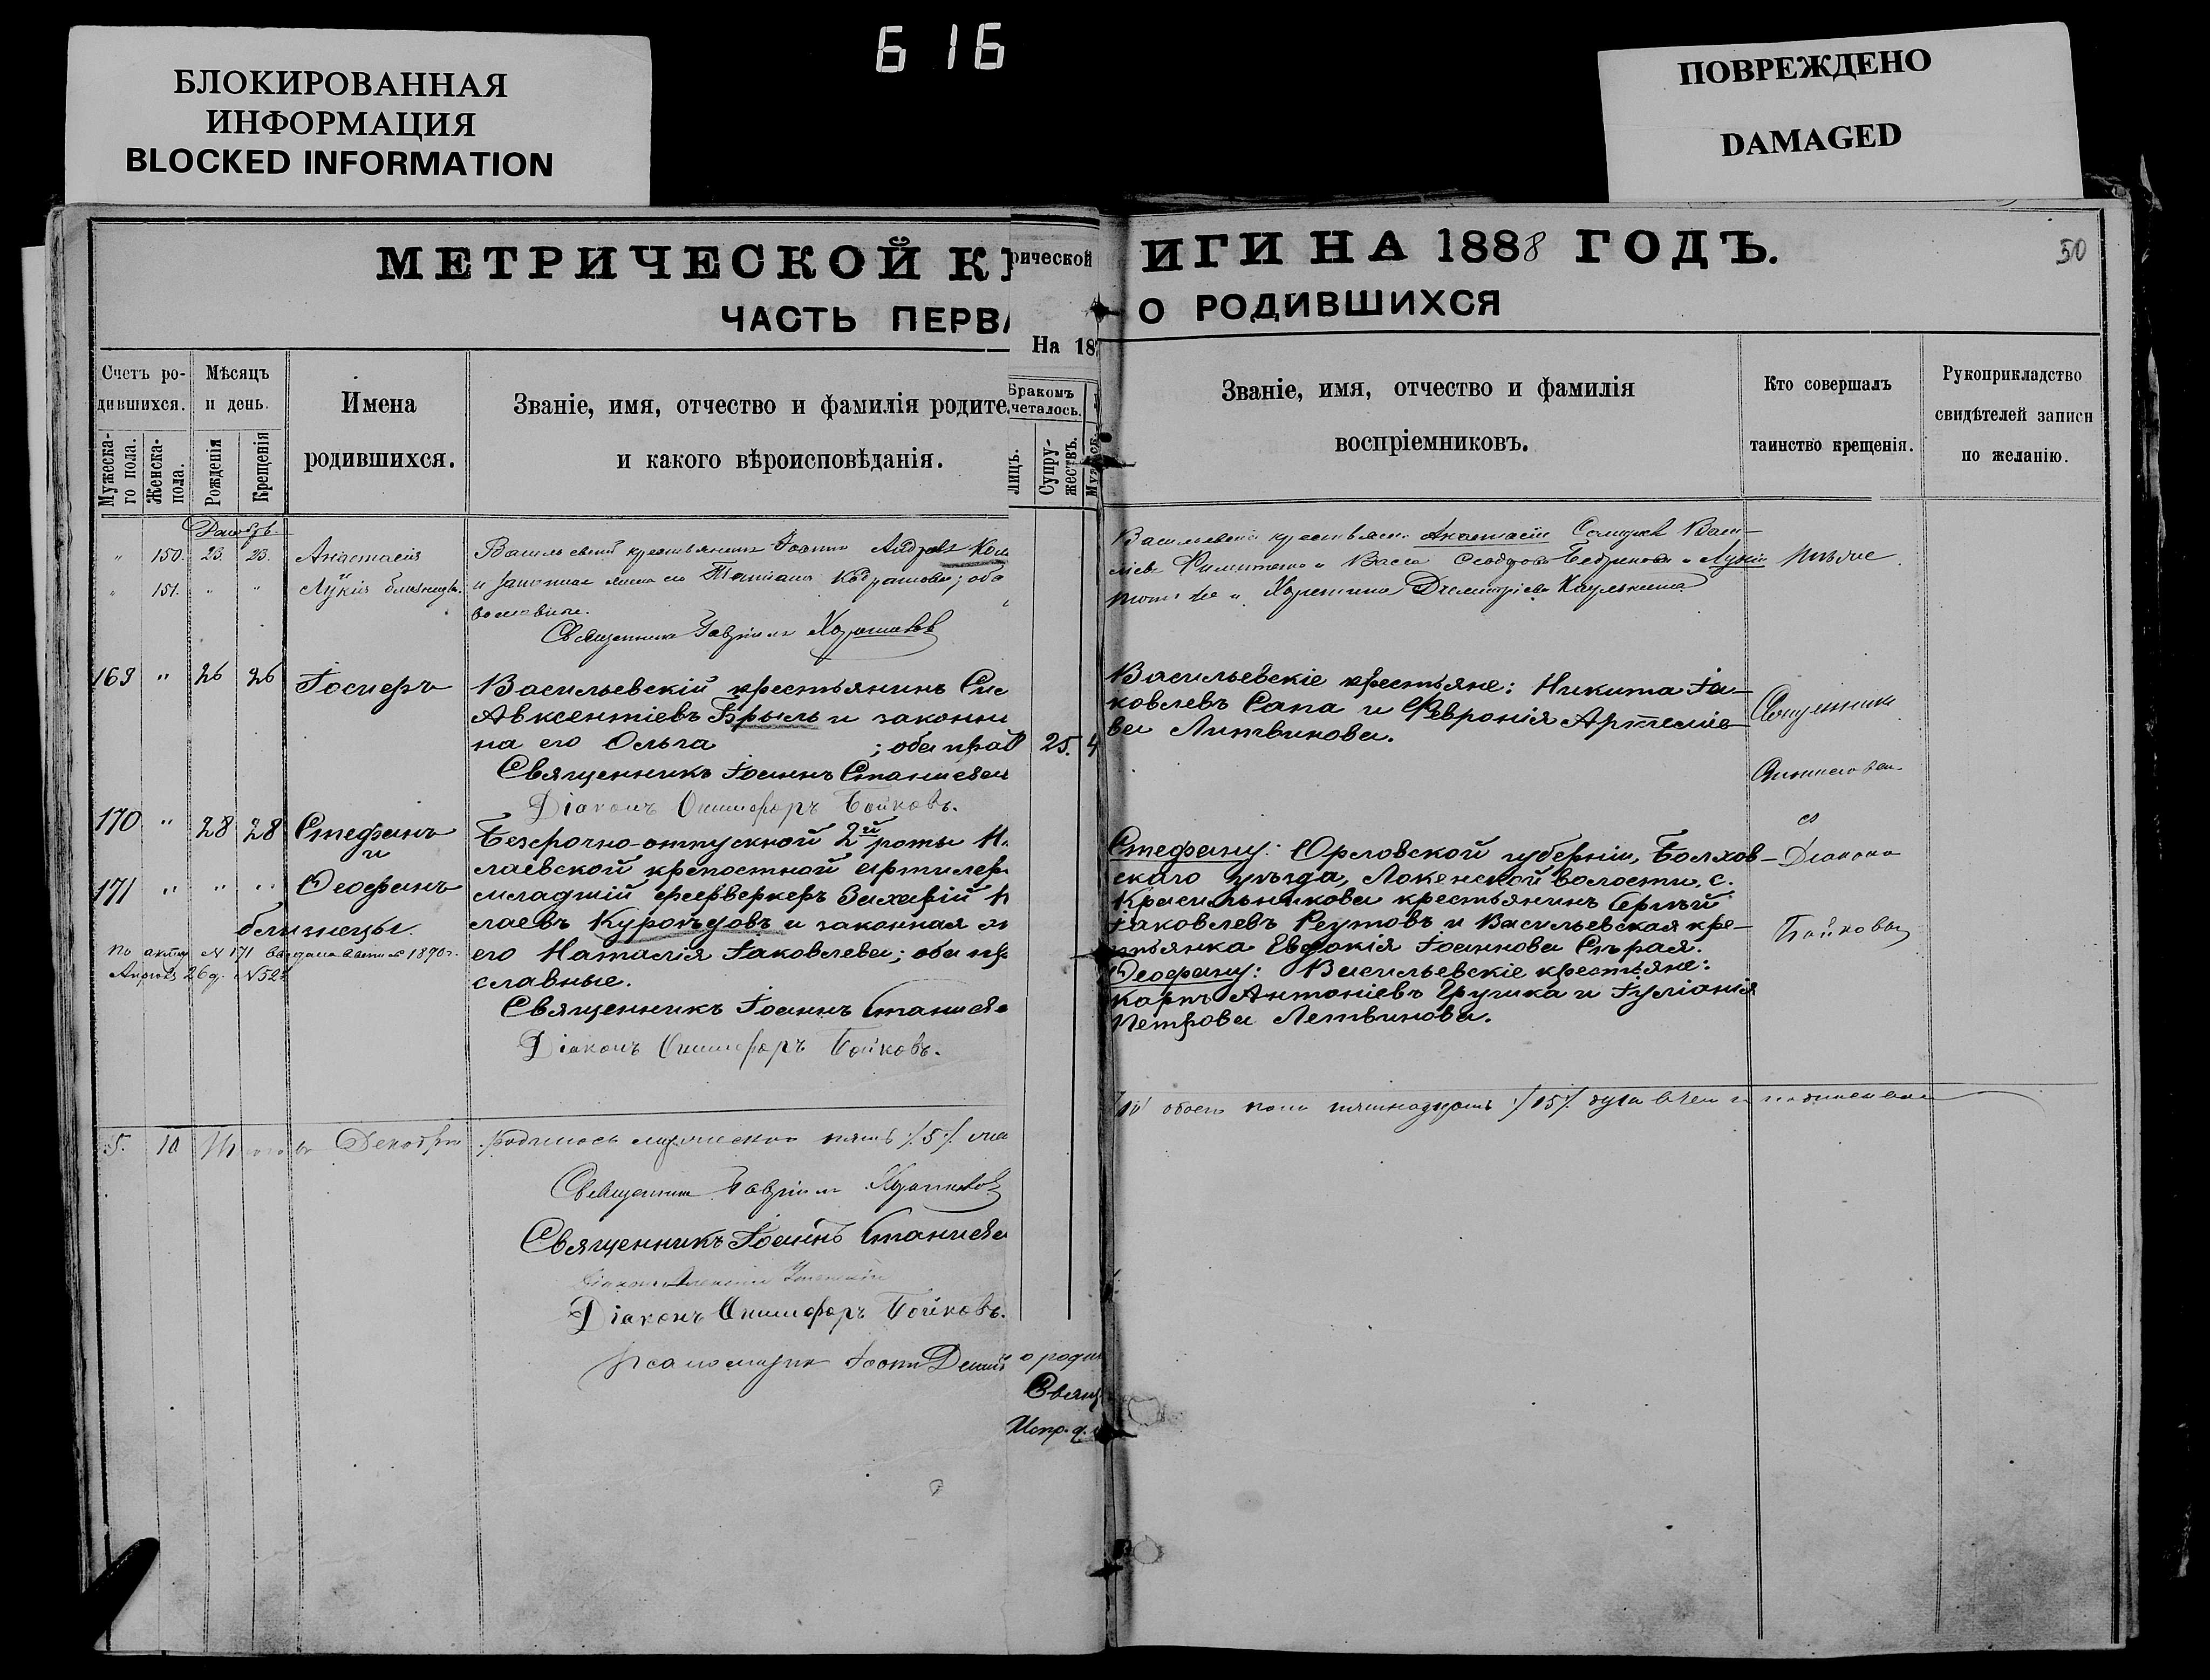 БЛОКИРОВАННАЯ
ИНФОРМАЦИЯ
BLOCKED INFORMATION
616
ПОВРЕЖДЕНО
DAMAGED
МЕТРИЧЕСКОЙ К
рической
ИГИ НА 1888 ГОДЪ.
50
ЧАСТЬ ПЕРВА
О РОДИВШИХСЯ
На 18
Счетъ ро-
дившихся.
Мужеска-
го пола.
Женска-
пола.
Мѣсяцъ
и день.
Рожденія
Крещенія
Имена
родившихся.
Званіе, имя, отчество и фамилія родите
и какого вѣроисповѣданія.
Бракомъ
четалось.
лицъ.
Супру-
жествъ.
Званіе, имя, отчество и фамилія
воспріемниковъ.
Кто совершалъ
таинство крещенія.
Рукоприкладство
свидѣтелей записи
по желанію.
" 150. 23. 23. Анастасія
" 151. " " Лукія близнецы.
Васильевскій крестьянинъ Іоаннъ
и законная жена его Татіана ; оба
Священникъ Гавріилъ
Васильевскіе крестьяне: Анастасіи
Тѣ же
169 " 26 26 Іосифъ
Васильевскій крестьянинъ Сис
Авксентіевъ Брыль и законна
на его Ольга ; оба прав
Священникъ Іоаннъ Станисла
Діаконъ Онисифоръ Бойковъ.
25.
Васильевскіе крестьяне: Никита Іа-
ковлевъ Сапа и Февронія Артеміе-
ва Литвинова.
Священникъ
170 " 28 28 Стефанъ
и
171 " " " Ѳеофанъ
близнецы.
По акту N 171 выдана 1890 г.
26 д. N 52
Безсрочно-отпускной 2й роты Н
лаевской крепостной артилер
младшій фейерверкеръ Захарій Н
лаевъ Куроѣдовъ и законная ж
его Наталія Іаковлева; оба пра
славные.
Священникъ Іоаннъ Станисла
Діаконъ Онисифоръ Бойковъ.
Стефану: Орловской губерніи, Болхов-
скаго уѣзда, волости, с.
Красильникова крестьянинъ Сергѣй
Іаковлевъ Реутовъ и Васильевская кре-
стьянка Евдокія Іоаннова Сѣрая.
Ѳеофану: Васильевскіе крестьяне:
Карпъ Антоніевъ Грушка и Іуліанія
Петрова Летвинова.
съ
Діаконо
Бойковы
5. 10 Итого въ Декабрѣ родилось мужескаго пять /5/ жен
10/ обоего пола пятнадцать /15/ душъ
Священникъ Гавріилъ
Священникъ Іоаннъ Станисла
Діаконъ Онисифоръ Бойковъ.
Псаломщикъ Іоаннъ
о роди
Свящ
Испр. д.